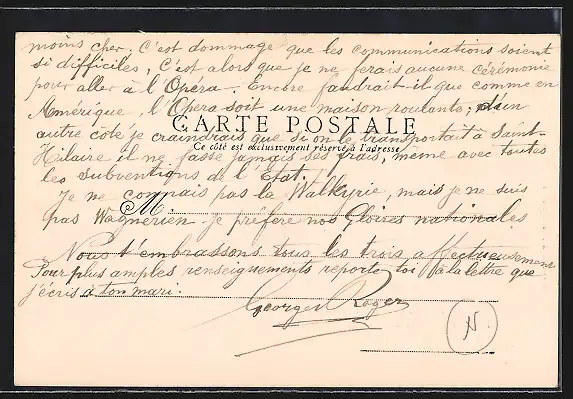 moins cher. C'est dommage que les communications soient
si difficiles, C'est alors que je ne ferais aucune cérémonie
pour aller à l'Opéra. Encore faudrait-il que comme en
Amérique, l'Opéra soit une maison roulante; d'un
autre côté je craindrais que si on le transportait à Saint-
CARTE POSTALE
Ce côté est exclusivement réservé à l'adresse
Hilaire il ne fasse jamais ses frais, même avec toutes
les subventions de l'Etat.
Je ne connais pas la Walkyrie, mais je ne suis
M
pas Wagnérien je préfère nos Gloires nationales
Nous t'embrassons tous les trois affectueusement
Pour plus amples renseignements reporte toi à la lettre que
j'écris à ton mari.
Georges Roger
N